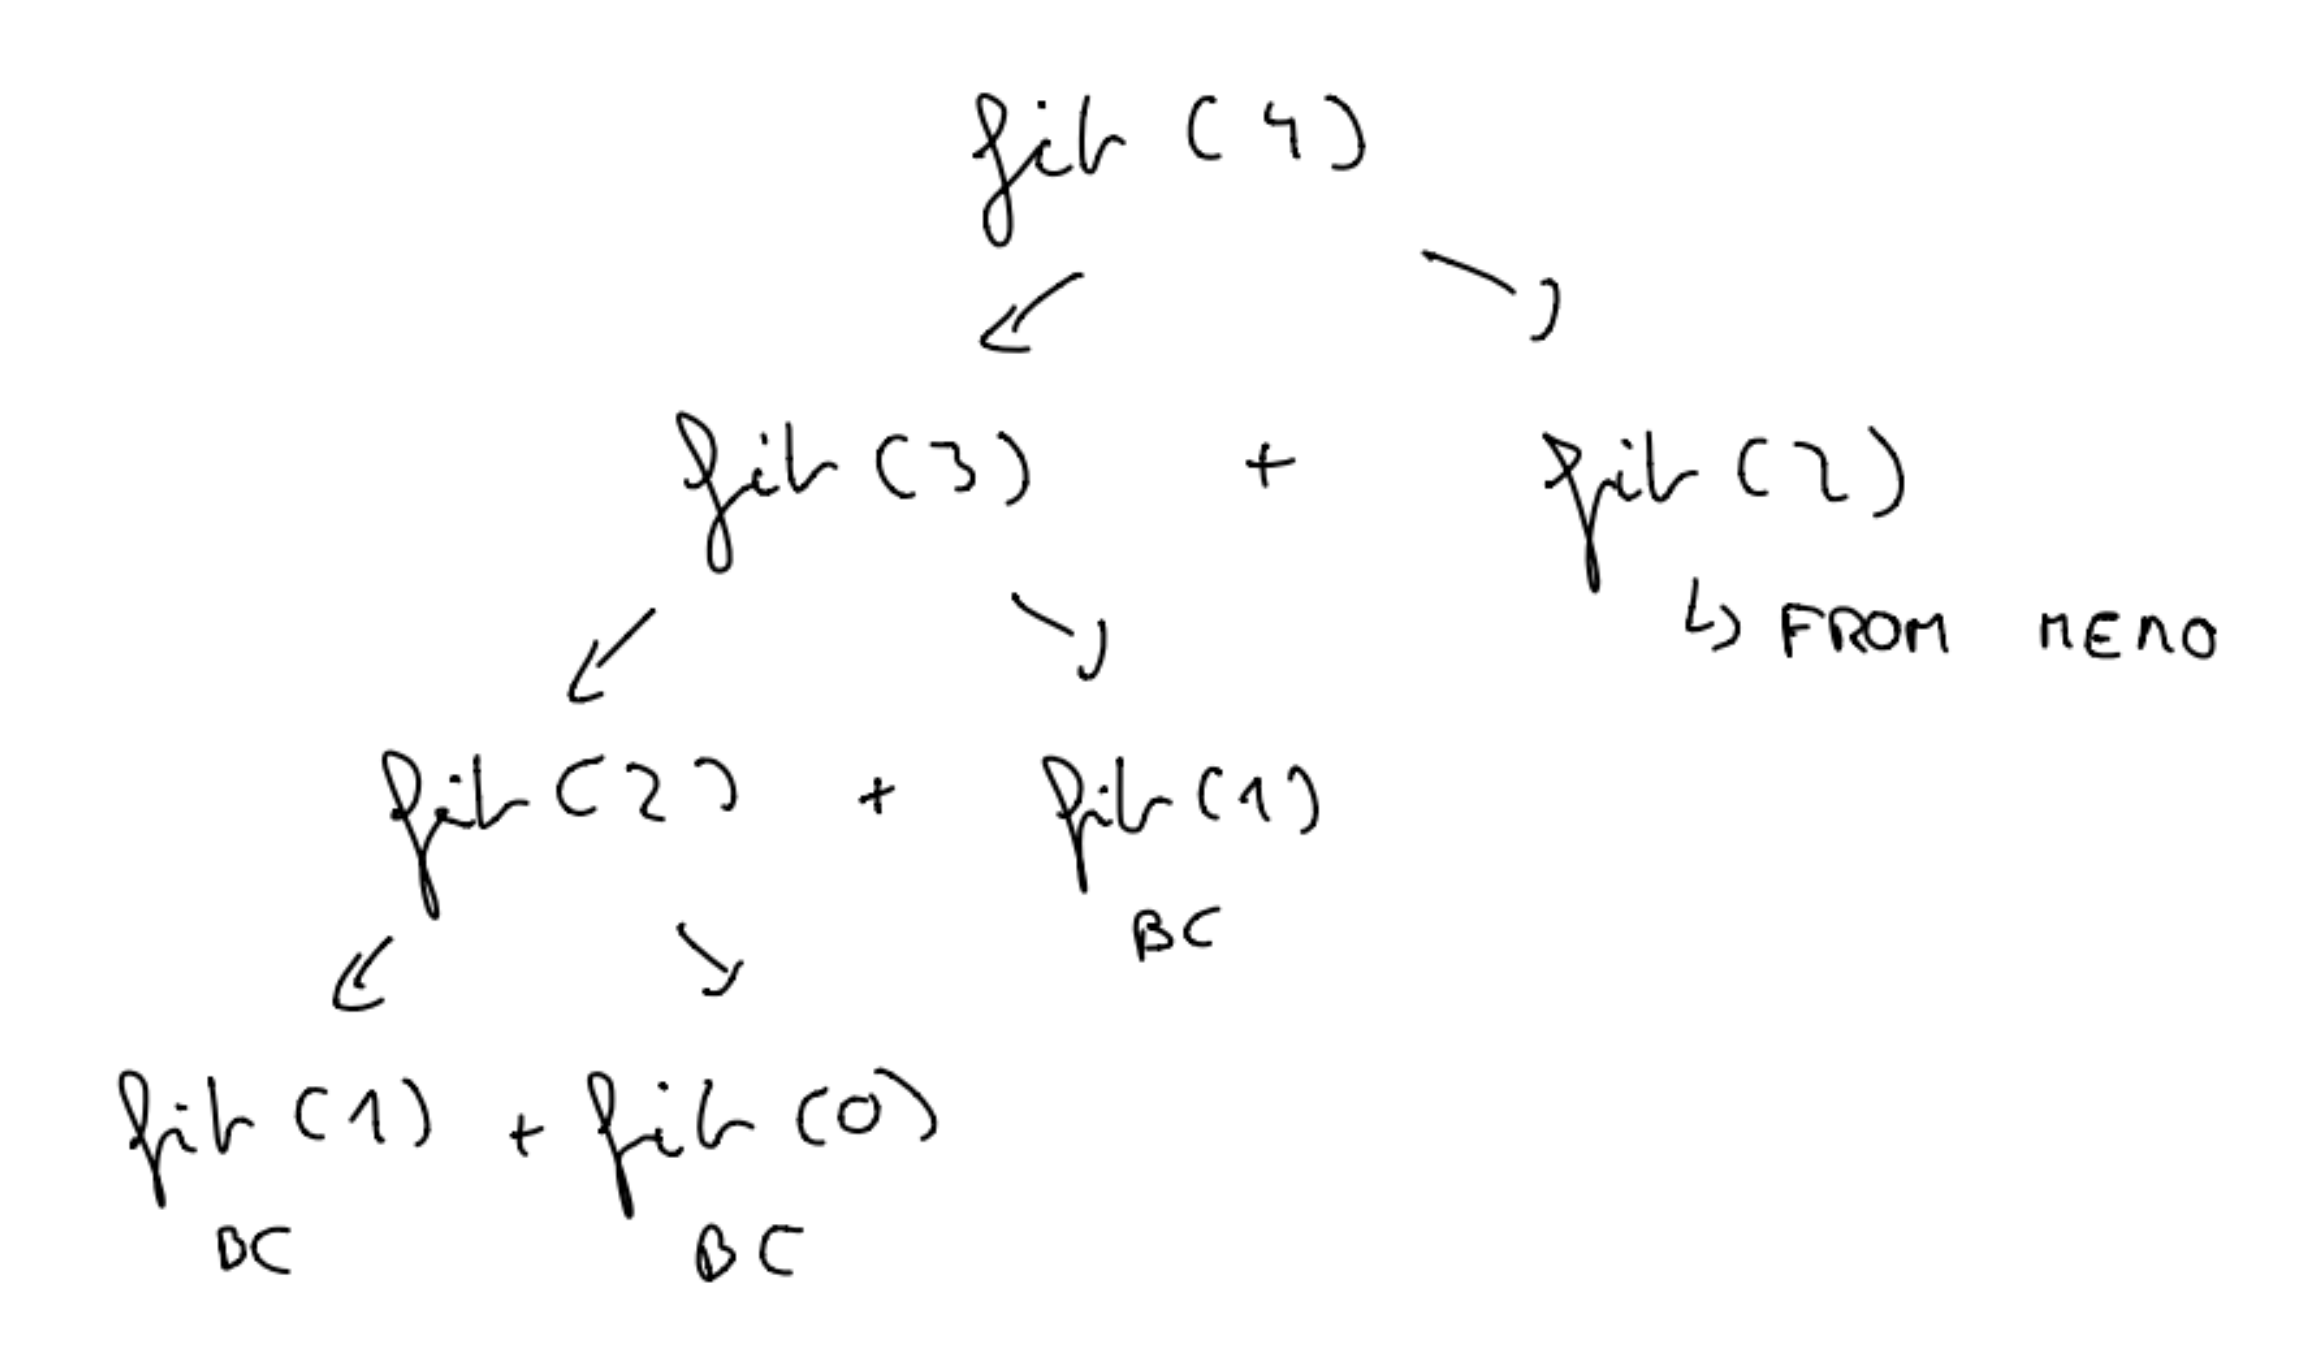 fib (4)
fib (3) + fib (2)
↳ FROM MEMO
fib (2) + fib (1)
BC
fib (1) + fib (0)
BC BC